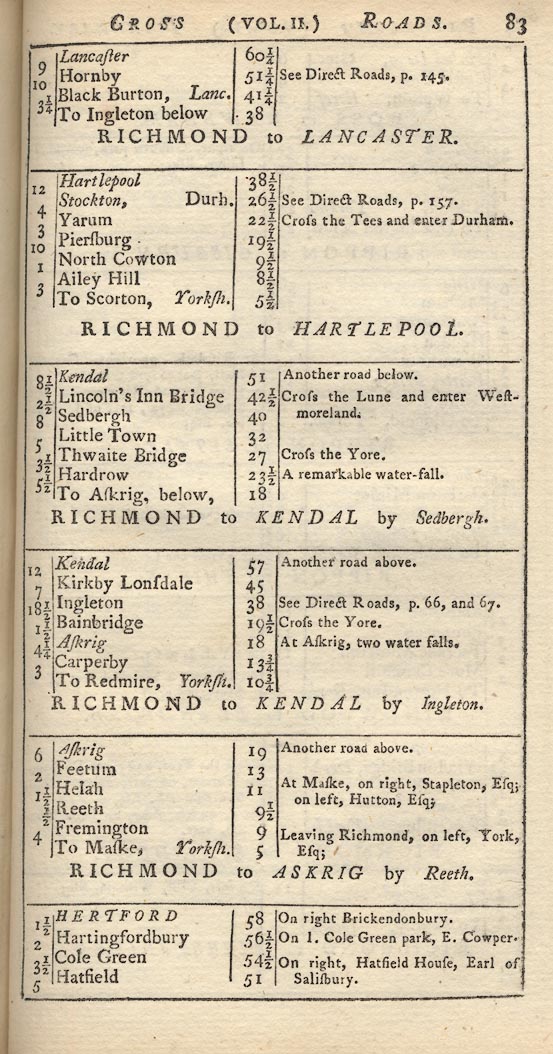 CROSS (VOL. II.) ROADS. 83
9 Lancaſter 60¼
10 Hornby 51¼ See Direct Roads, p. 145.
3¼ Black Burton, Lanc. 41¼
To Ingleton below 38
RICHMOND to LANCASTER.
12 Hartlepool 38½
4 Stockton, Durh. 26½ See Direct Roads, p. 157.
3 Yarum 22½ Croſs the Tees and enter Durham.
10 Pierſburg 19½
1 North Cowton 9½
3 Ailey Hill 8½
To Scorton, Yorkſh. 5½
RICHMOND to HARTLEPOOL.
8½ Kendal 51 Another road below.
2½ Lincoln's Inn Bridge 42½ Croſs the Lune and enter Weſt-
8 Sedbergh 40 moreland.
5 Little Town 32
3½ Thwaite Bridge 27 Croſs the Yore.
5½ Hardrow 23½ A remarkable water-fall.
To Aſkrig, below, 18
RICHMOND to KENDAL by Sedbergh.
12 Kendal 57 Another road above.
7 Kirkby Lonſdale 45
18½ Ingleton 38 See Direct Roads, p. 66, and 67.
1½ Bainbridge 19½ Croſs the Yore.
4¼ Aſkrig 18 At Aſkrig, two water falls.
3 Carperby 13¾
To Redmire, Yorkſh. 10¾
RICHMOND to KENDAL by Ingleton.
6 Aſkrig 19 Another road above.
2 Feetum 13
1½ Helah 11 At Maſke, on right, Stapleton, Eſq;
½ Reeth 9½ on left, Hutton, Eſq;
4 Fremington 9 Leaving Richmond, on left, York,
To Maſke, Yorkſh. 5 Eſq;
RICHMOND to ASKRIG by Reeth.
1½ HERTFORD 58 On right Brickendonbury.
2 Hartingfordbury 56½ On l. Cole Green park, E. Cowper.
3½ Cole Green 54½ On right, Hatfield Houſe, Earl of
5 Hatfield 51 Saliſbury.